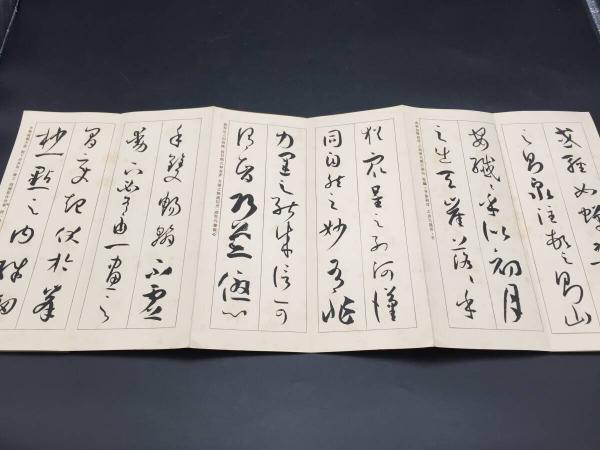 或輕如蟬翼
之則泉注頓之則山
安纖纖乎似初月
之出天崖落落乎
猶衆星之列河漢
同自然之妙有非
力運之能成信可
謂智巧兼優心
手雙暢翰不虛
動下必有由一畫之
間變起伏於峯
杪一點之內殊衄